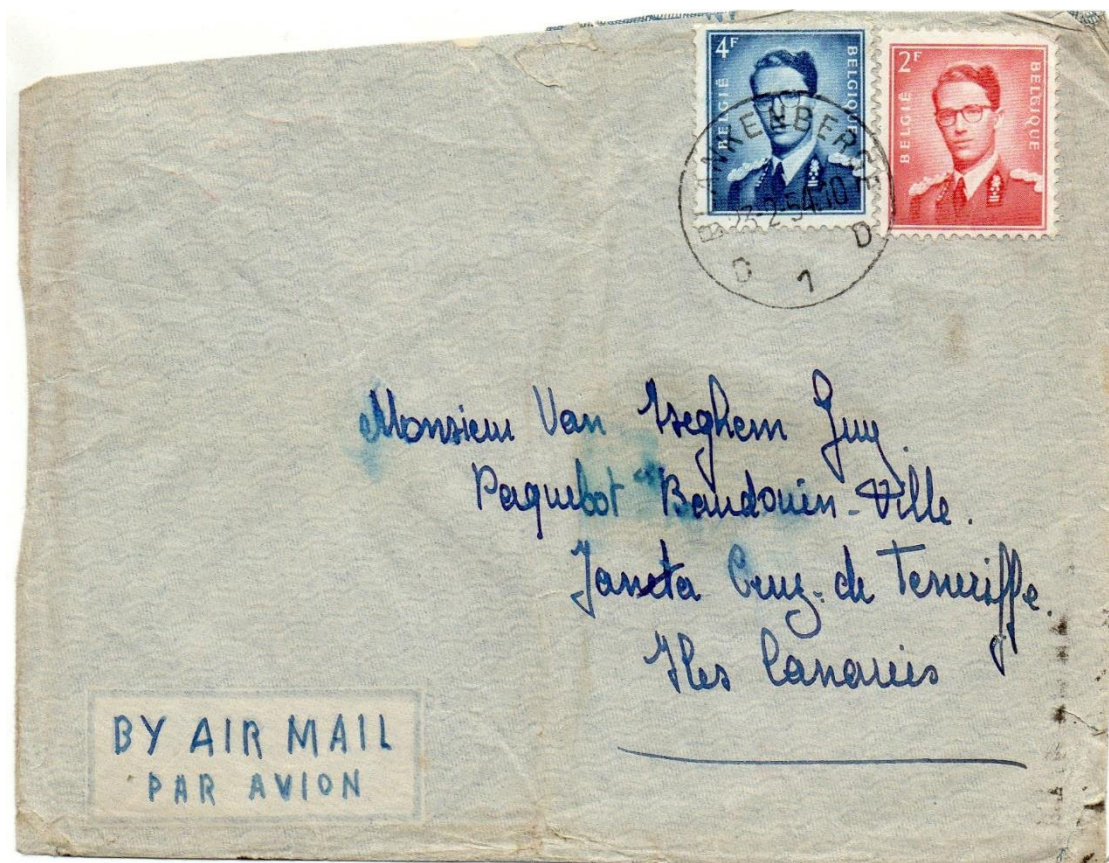 4F
BELGIË
BELGIQUE
2F
BELGIË
BELGIQUE
BLANKENBERGE
23-2-54.10
D 1 D
Monsieur Van Iseghem Guy.
Paquebot "Baudouin-Ville.
Sancta Cruz-de Teneriffe.
Iles Canaries
BY AIR MAIL
PAR AVION